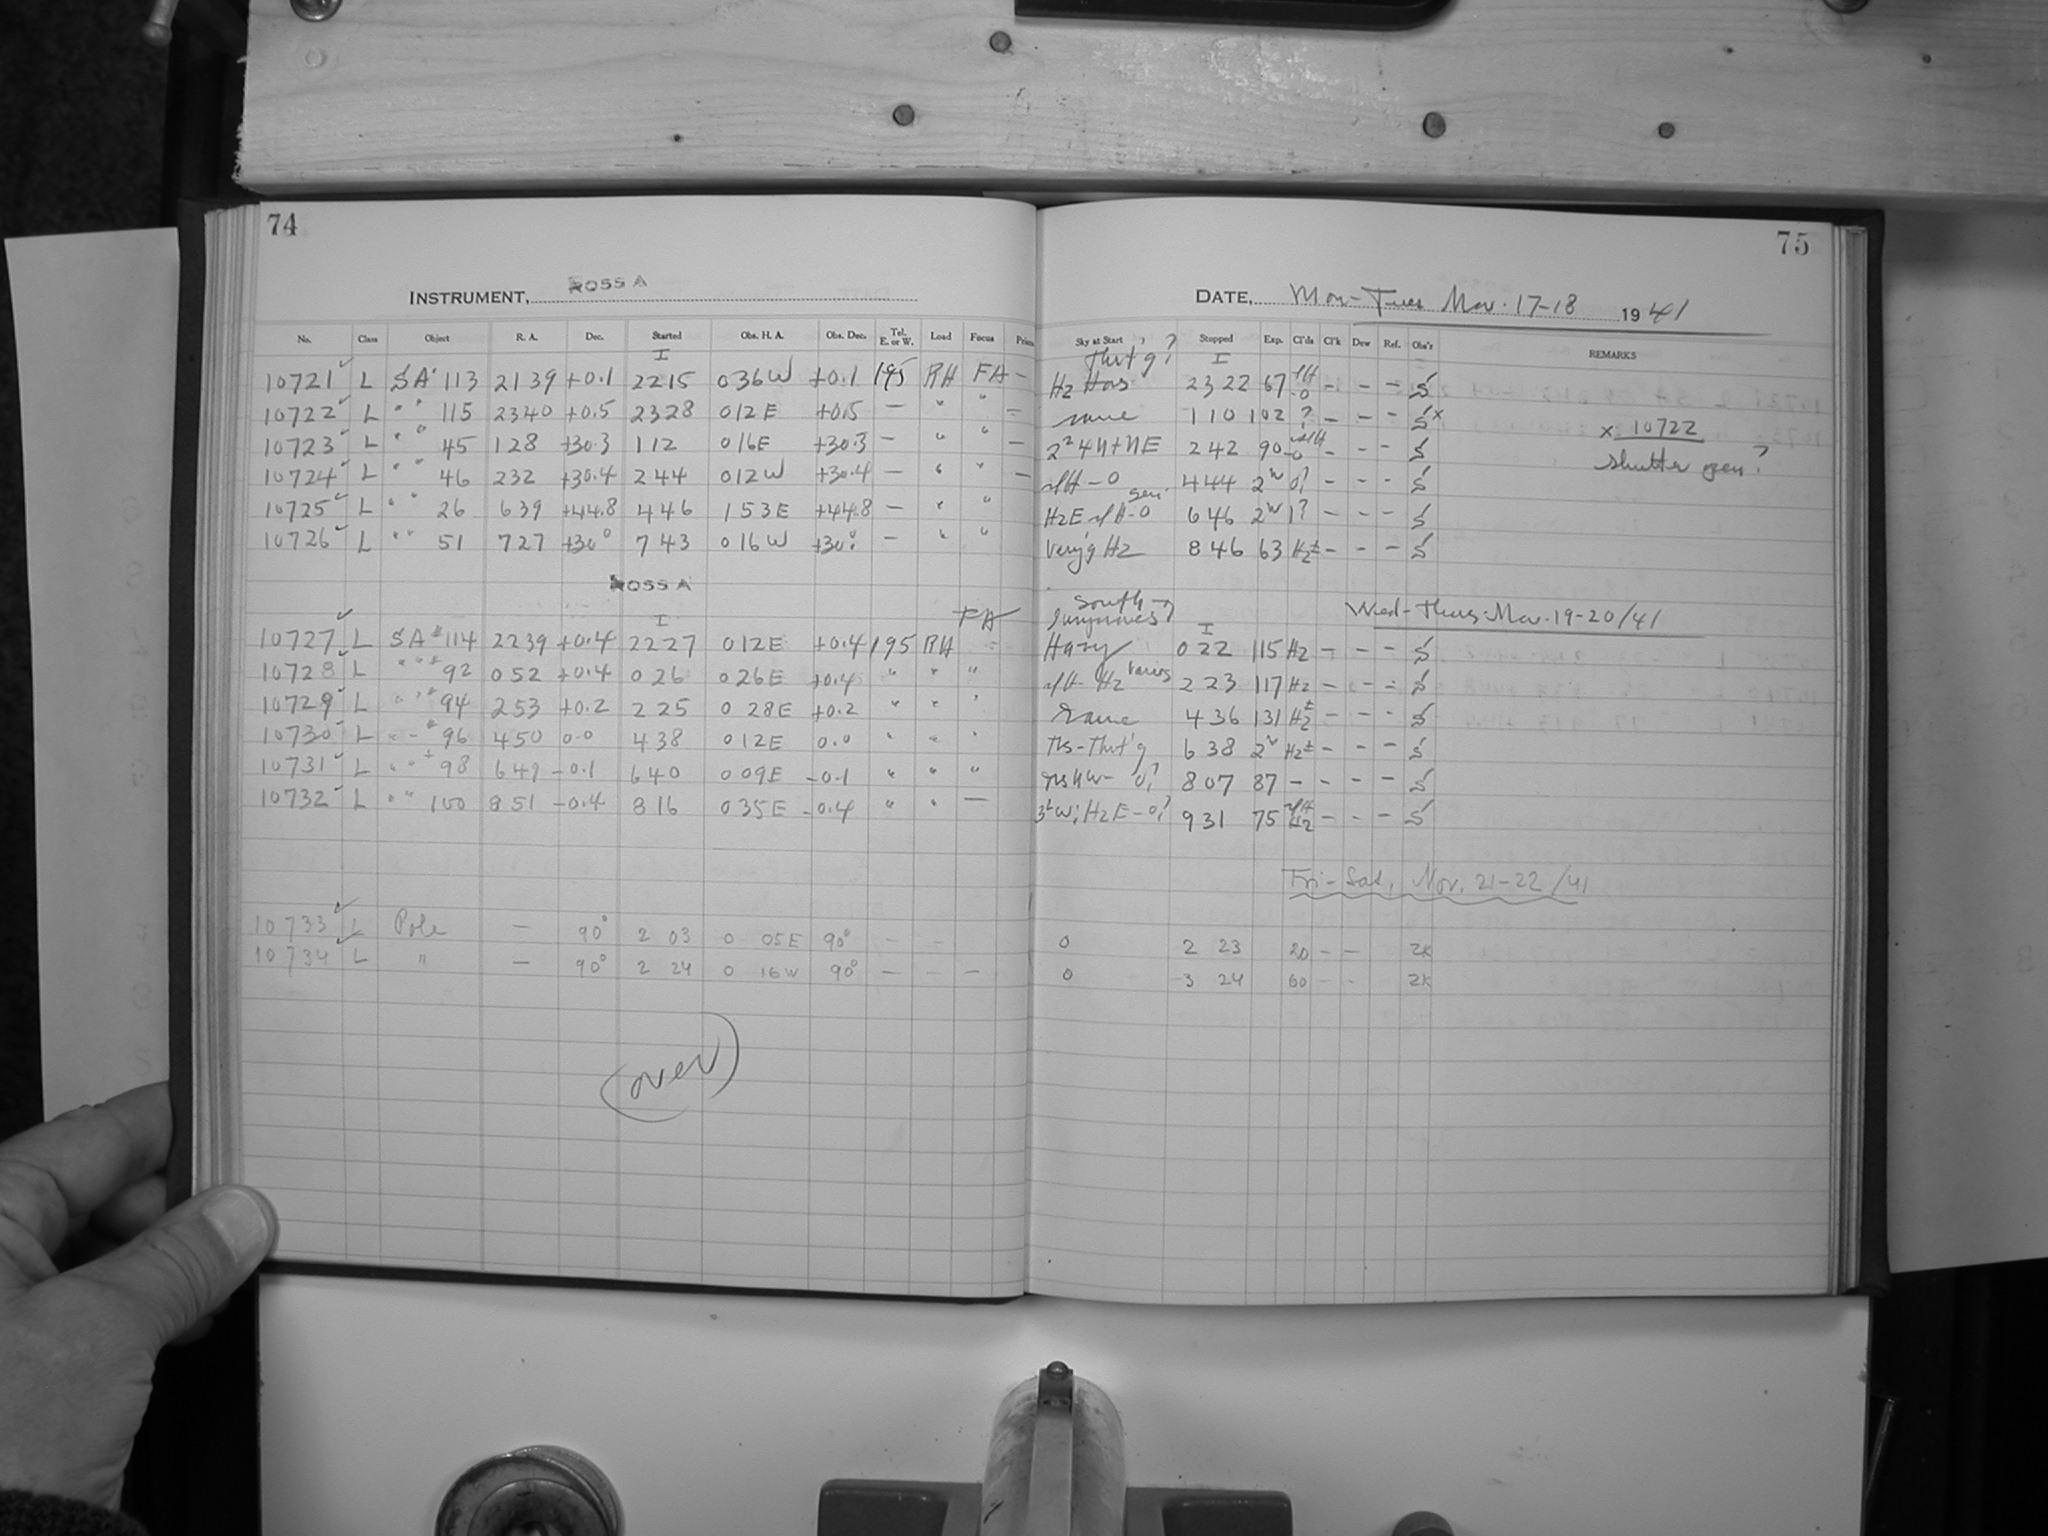 74
INSTRUMENT, ROSS A
No. Class Object R. A. Dec. Started Obs. H. A. Obs. Dec. Tel. E. or W. Load Focus
I
10721 L SA 113 2139 +0.1 2215 036W +0.1 195 RH FA -
10722 L " " 115 2340 +0.5 2328 012E +0.5 - " " -
10723 L " " 45 128 +30.3 112 016E +30.3 - " " -
10724 L " " 46 232 +30.4 244 012W +30.4 - " " -
10725 L " " 26 639 +44.8 446 153E +44.8 - " "
10726 L " " 51 727 +30° 743 016W +30° - " "
ROSS A
I FA
10727 L SA # 114 2239 +0.4 2227 012E +0.4 195 RH -
10728 L " " # 92 052 +0.4 026 026E +0.4 " " "
10729 L " " # 94 253 +0.2 225 028E +0.2 " " '
10730 L " " # 96 450 0.0 438 012E 0.0 " " '
10731 L " " # 98 649 -0.1 640 009E -0.1 " " "
10732 L " " 100 851 -0.4 816 035E -0.4 " " -
10733 L Pole - 90° 2 03 0 05E 90° - -
10734 L " - 90° 2 24 0 16W 90° - - -
(over)
75
DATE, Mon-Tues Nov. 17-18 1941
Sky at Start Stopped Exp. Cl'ds Cl'k Dew Ref. Obs'r REMARKS
Thrt'g? I
Hz 2322 67 - - - S
same 110 102 ? - - - S x
x 10722
242 90 - - - S
shutter open?
444 2 0? - - - S
646 2 1? - - - S
Very'g Hz 846 63 Hz± - - - S
South
Improves?
Wed-Thurs. Nov. 19-20/41
I
Hazy 022 115 Hz - - - S
Hz varies 223 117 Hz - - - S
Same 436 131 Hz± - - - S
Ths-Thrt'g 638 2 Hz± - - - S
0? 807 87 - - - - S
HzE-0? 931 75 Hz - - - S
Fri-Sat, Nov. 21-22/41
0 2 23 20 - - ZK
0 3 24 60 - - ZK